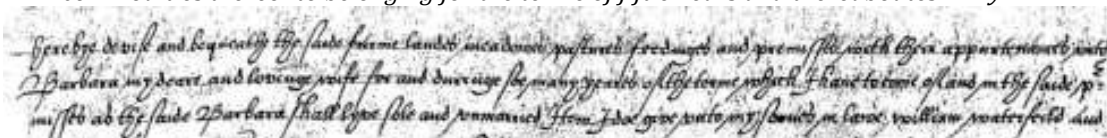 herebye devise and bequeathe the saide farme landes meadowes pastures feedinges and premisses with their appurtenances unto
Barbara my deare and lovinge wife for and duringe soe many yeares of the terme which I have to come of and in the saide p
misses as the saide Barbara shall lyve sole and unmarried Item I doe give unto my sonne in lawe william waterfeild and